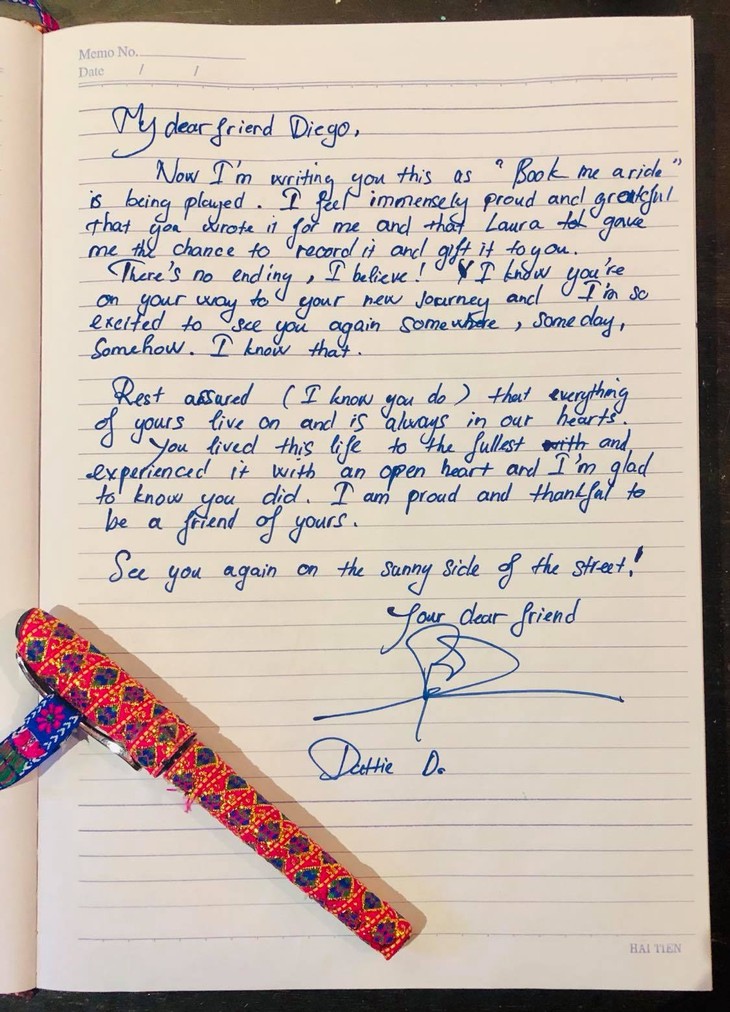 Memo No.
Date / /
My dear friend Diego,
Now I'm writing you this as "Book me a ride"
is being played. I feel immensely proud and grateful
that you wrote it for me and that Laura gave
me the chance to record it and gift it to you.
There's no ending, I believe! I know you're
on your way to your new journey and I'm so
excited to see you again somewhere, someday,
somehow. I know that.
Rest assured (I know you do) that everything
of yours live on and is always in our hearts.
You lived this life to the fullest and
experienced it with an open heart and I'm glad
to know you did. I am proud and thankful to
be a friend of yours.
See you again on the sunny side of the street!
Your dear friend
Dattie D.
HẢI TIẾN